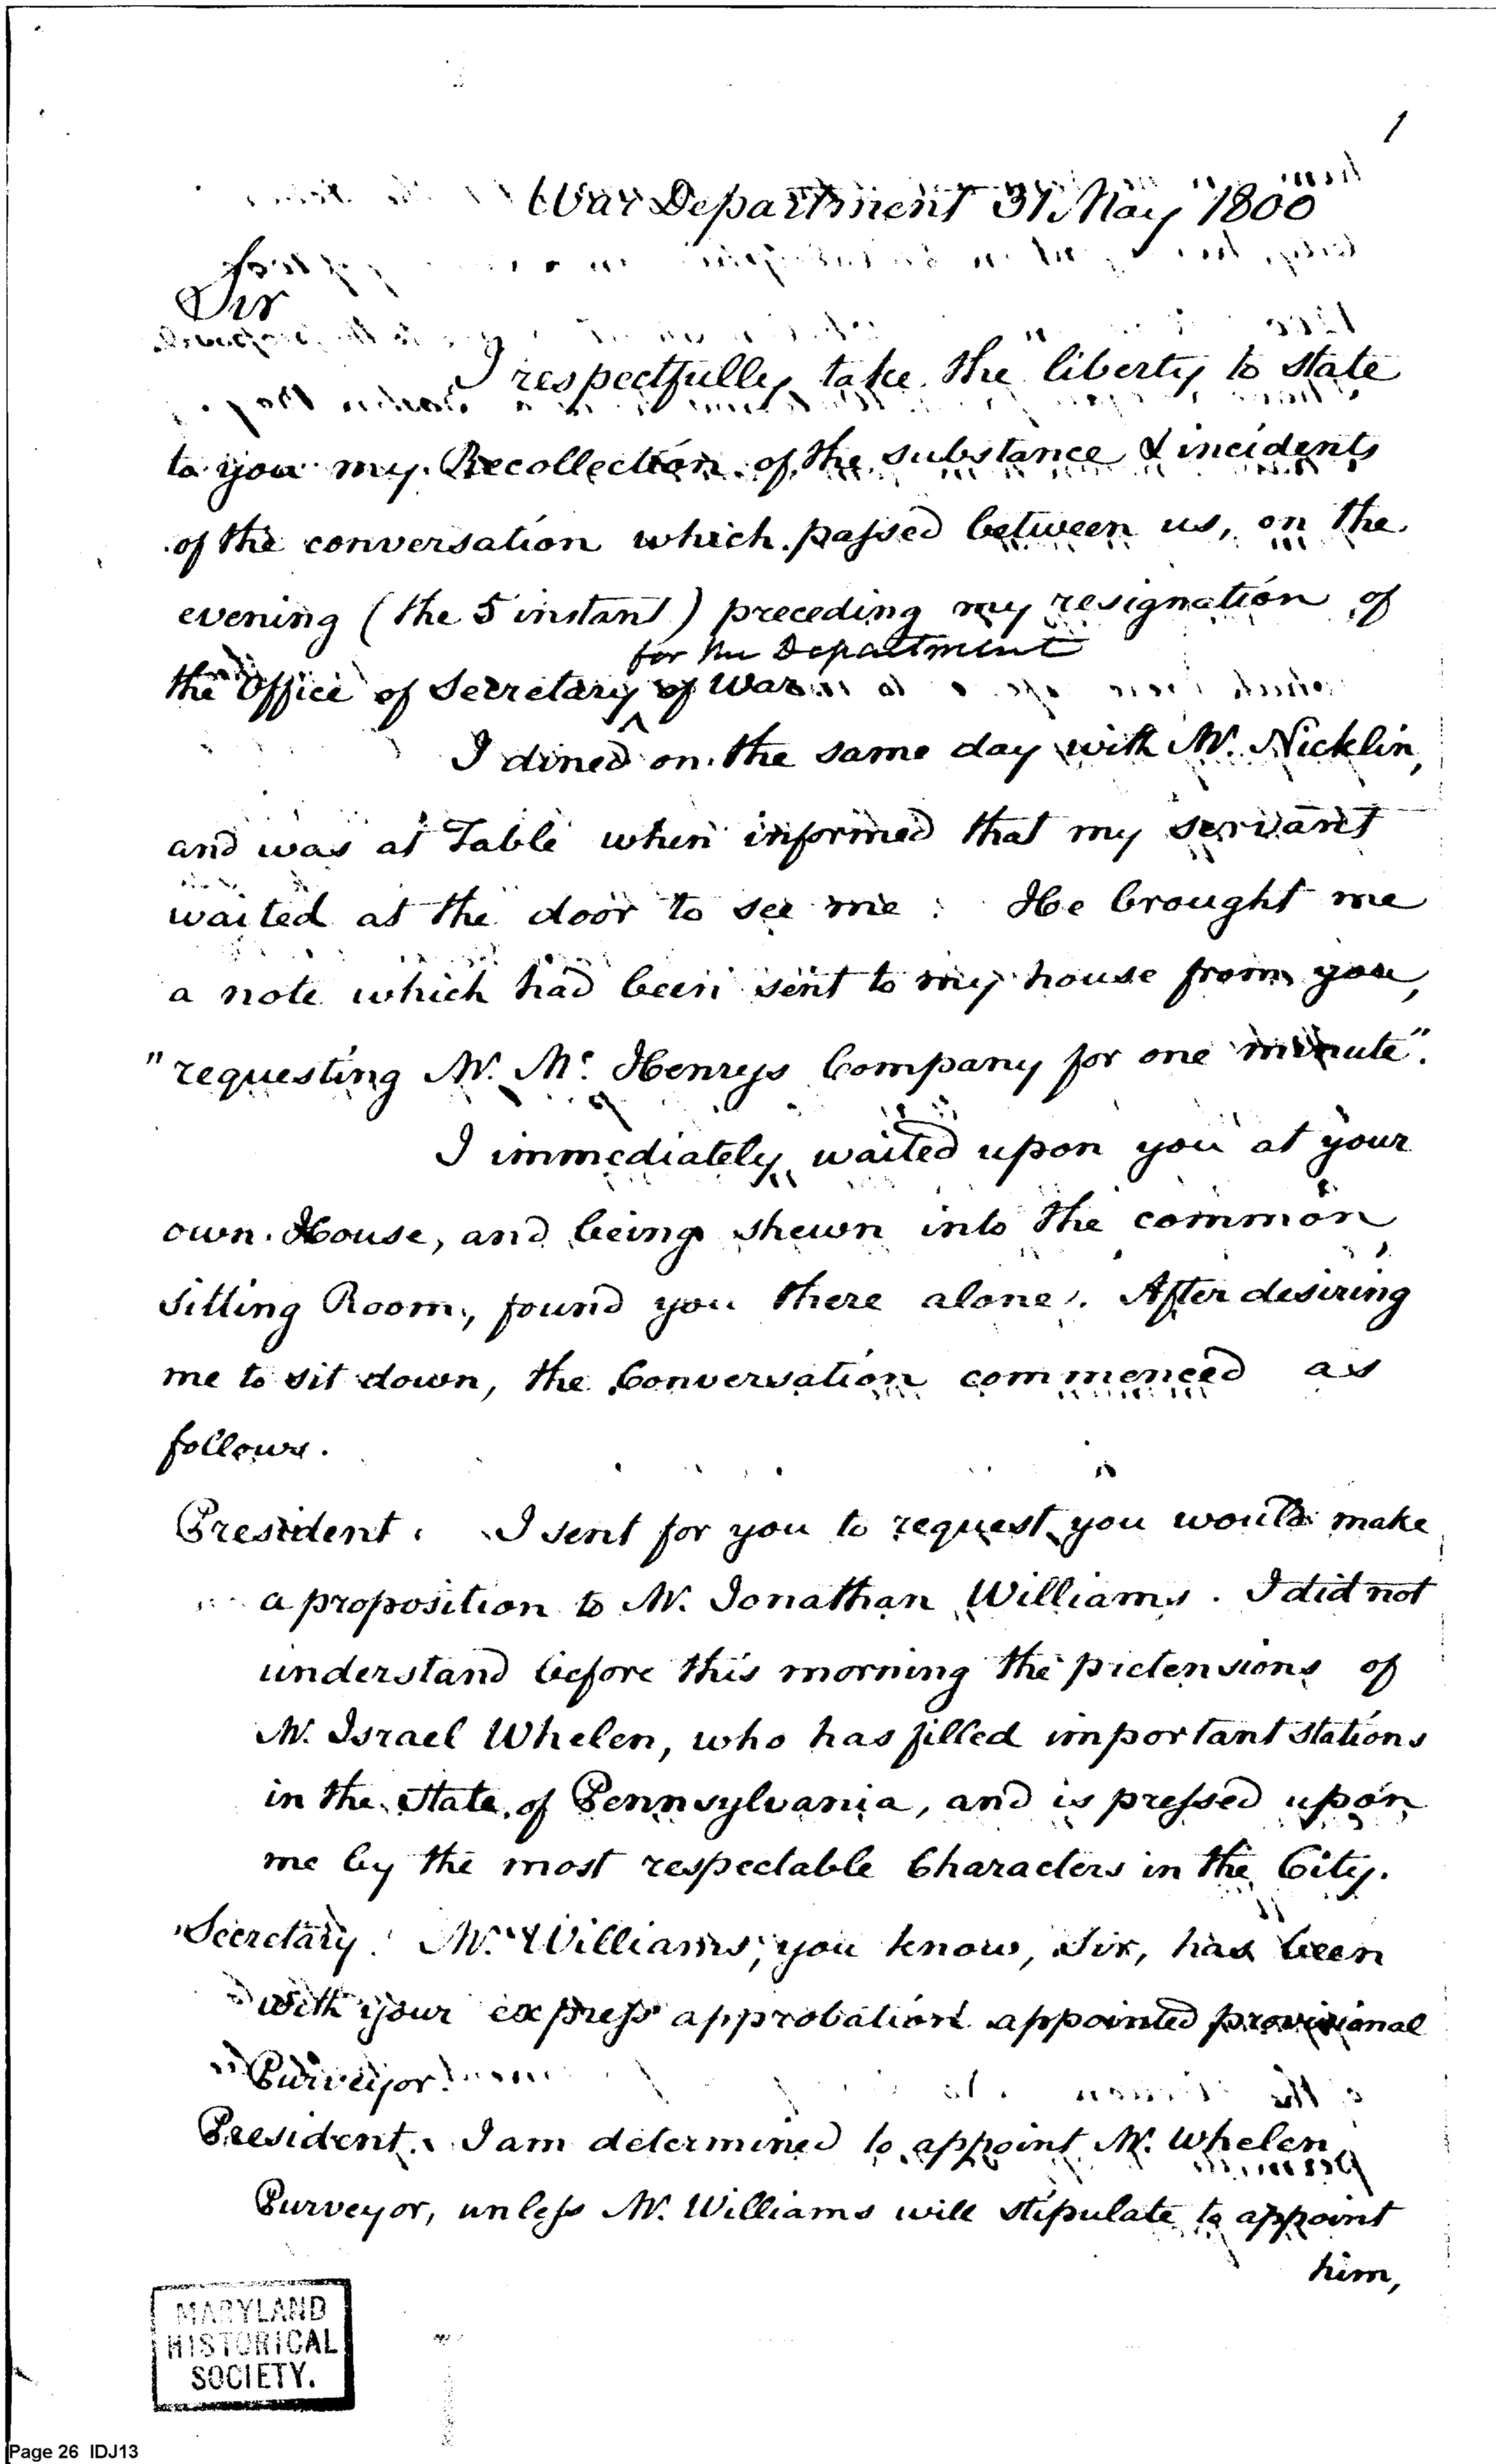 1
War Department 31 May 1800
Sir
I respectfully take the liberty to state
to you my Recollection of the substance & incidents
of the conversation which passed between us, on the
evening (the 5 instant) preceding my resignation of
for the Department
the Office of Secretary of War
I dined on the same day with Mr. Nicklin,
and was at Table when informed that my servant
waited at the door to see me: He brought me
a note which had been sent to my house from you,
"requesting Mr. Mc. Henrys Company for one minute".
I immediately waited upon you at your
own House, and being shewn into the common
sitting Room, found you there alone. After desiring
me to sit down, the Conversation commenced as
follows.
President. I sent for you to request you would make
a proposition to Mr. Jonathan Williams. I did not
understand before this morning the pretensions of
Mr. Israel Whelen, who has filled important stations
in the State of Pennsylvania, and is pressed upon
me by the most respectable Characters in the City.
Secretary. Mr. Williams, you know, Sir, has been
with your express approbation appointed provisional
Purveyor.
President. I am determined to appoint Mr. Whelen
Purveyor, unless Mr. Williams will stipulate to appoint
him,
MARYLAND
HISTORICAL
SOCIETY.
Page 26 IDJ13